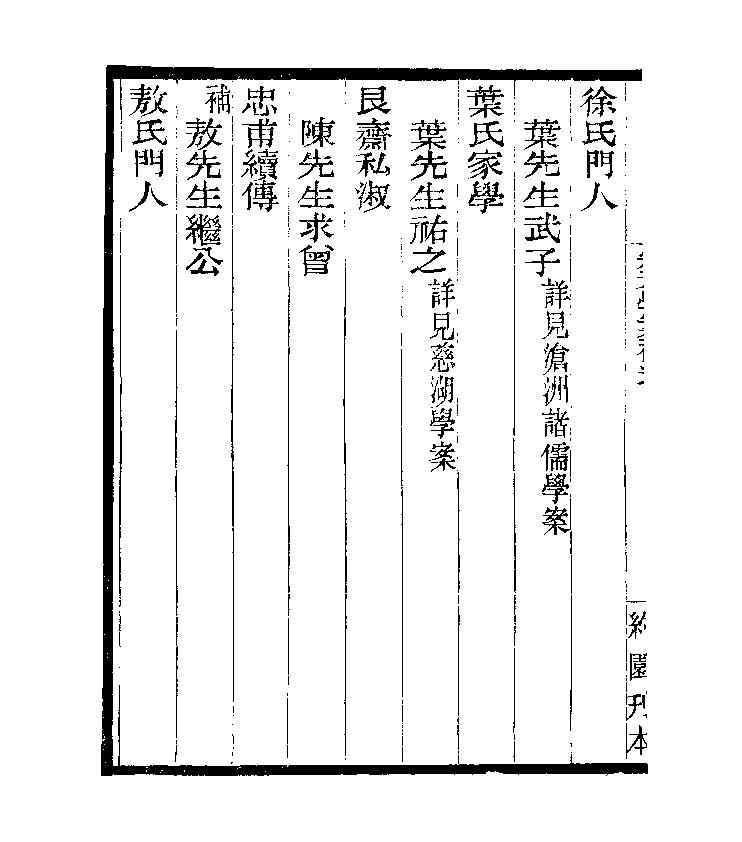 徐氏門人
葉先生武子詳見滄洲諸儒學案
葉氏家學
葉先生祐之詳見慈湖學案
艮齋私淑
陳先生求曾
忠甫續傳
補敖先生繼公
敖氏門人
約園刋本